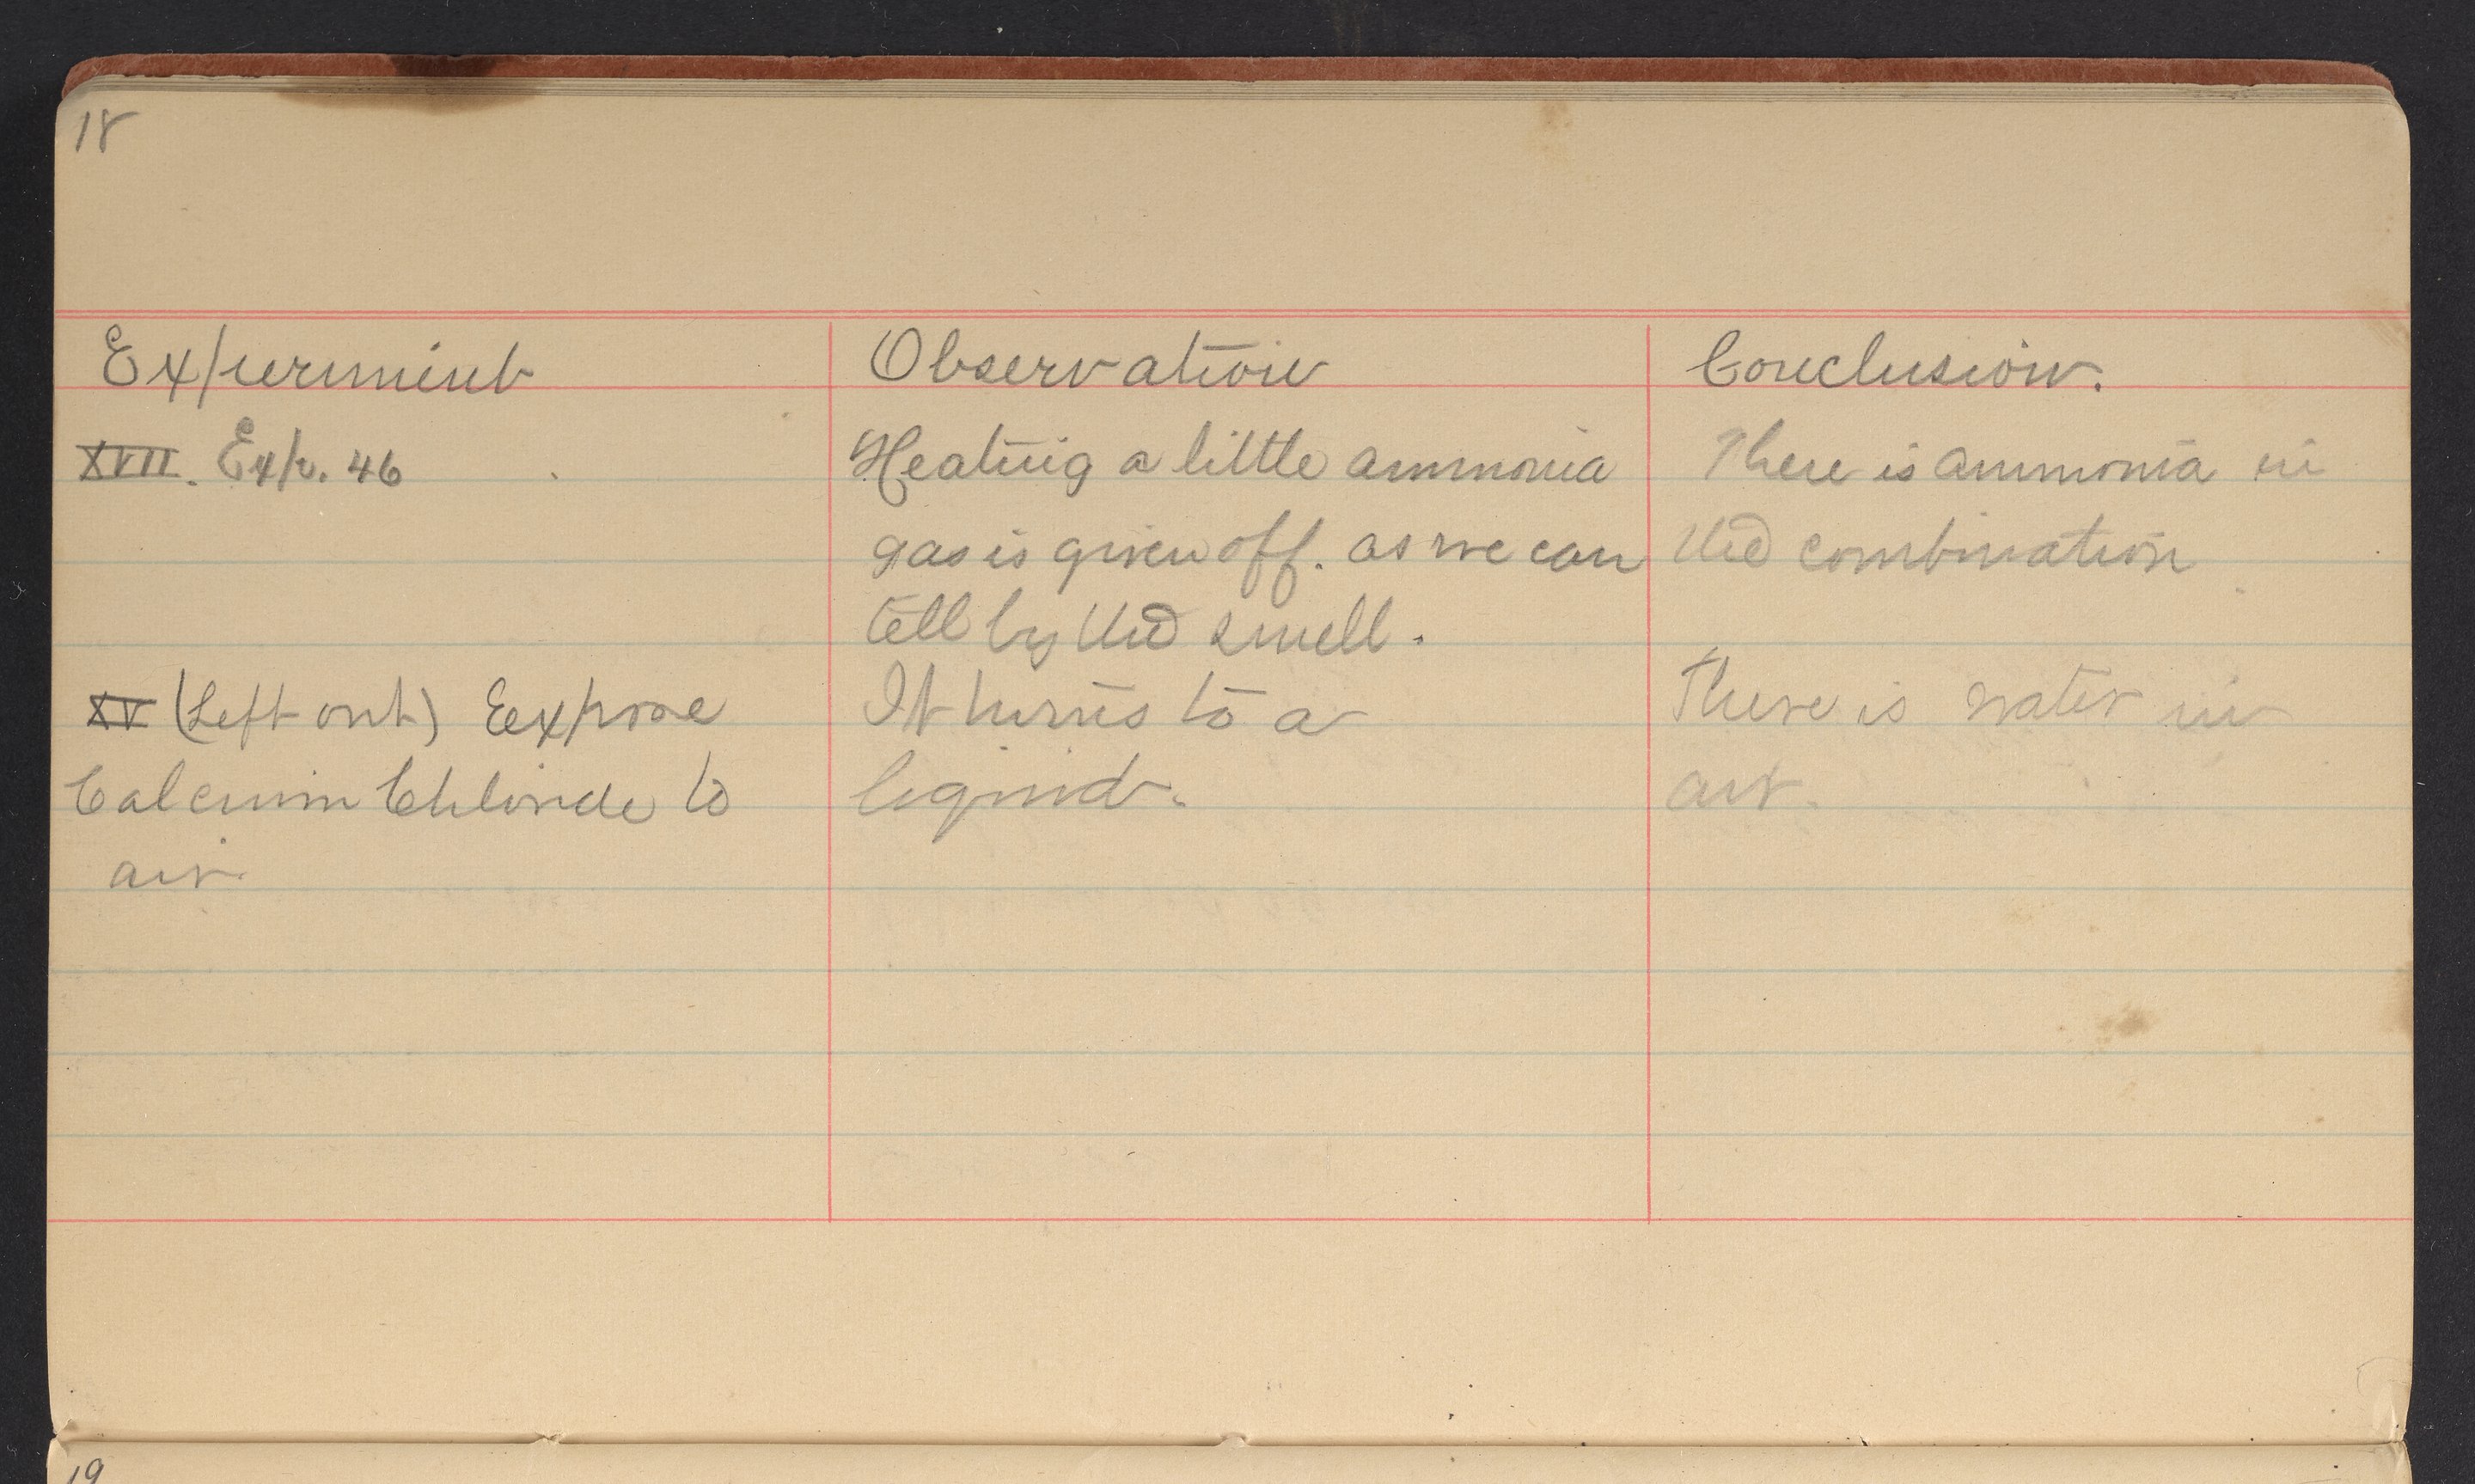 18
Experiment Observation Conclusion.
XVII. Exp. 46 Heating a little ammonia There is ammonia in
gas is given off. as we can the combination
tell by the smell.
XV (Left out) Expose It turns to a There is water in
Calcium Chloride to liquid. air.
air.
19